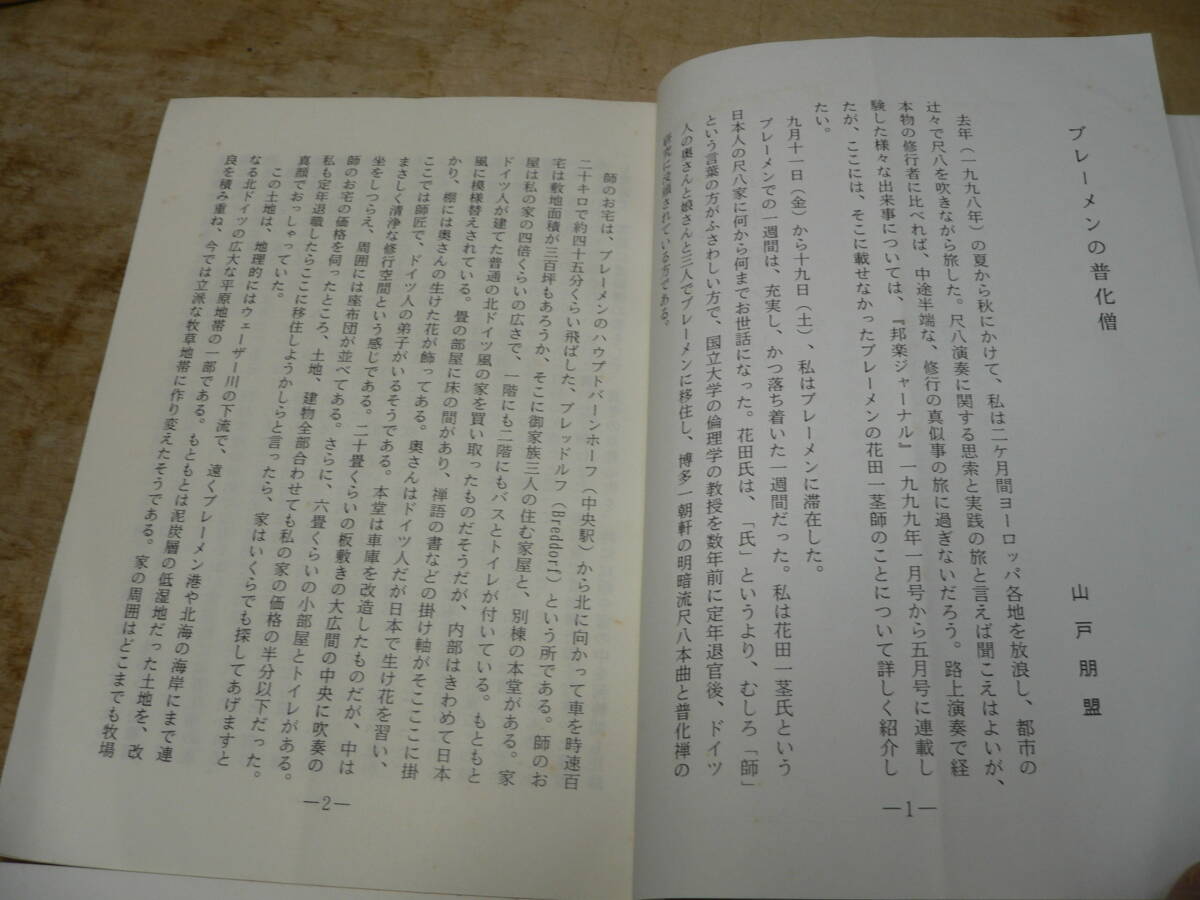 ブレーメンの普化僧
山戸朋盟
去年（一九九八年）の夏から秋にかけて、私は二ケ月間ヨーロッパ各地を放浪し、都市の
辻々で尺八を吹きながら旅した。尺八演奏に関する思索と実践の旅と言えば聞こえはよいが、
本物の修行者に比べれば、中途半端な、修行の真似事の旅に過ぎないだろう。路上演奏で経
験した様々な出来事については、『邦楽ジャーナル』一九九九年一月号から五月号に連載し
たが、ここには、そこに載せなかったブレーメンの花田一茎師のことについて詳しく紹介し
たい。
九月十一日（金）から十九日（土）、私はブレーメンに滞在した。
ブレーメンでの一週間は、充実し、かつ落ち着いた一週間だった。私は花田一茎氏という
日本人の尺八家に何から何までお世話になった。花田氏は、「氏」というより、むしろ「師」
という言葉の方がふさわしい方で、国立大学の倫理学の教授を数年前に定年退官後、ドイツ
人の奥さんと娘さんと三人でブレーメンに移住し、博多一朝軒の明暗流尺八本曲と普化禅の
研究に没頭されている方である。
―1―
師のお宅は、ブレーメンのハウプドバーンホーフ（中央駅）から北に向かって車を時速百
二十キロで約四十五分くらい飛ばした、ブレッドルフ（Breddorf）という所である。師のお
宅は敷地面積が三百坪もあろうか、そこに御家族三人の住む家屋と、別棟の本堂がある。家
屋は私の家の四倍くらいの広さで、一階にも二階にもバスとトイレが付いている。もともと
ドイツ人が建てた普通の北ドイツ風の家を買い取ったものだそうだが、内部はきわめて日本
風に模様替えされている。畳の部屋に床の間があり、禅語の書などの掛け軸がそこここに掛
かり、棚には奥さんの生けた花が飾ってある。奥さんはドイツ人だが日本で生け花を習い、
ここでは師匠で、ドイツ人の弟子がいるそうである。本堂は車庫を改造したものだが、中は
まさしく清浄な修行空間という感じである。二十畳くらいの板敷きの大広間の中央に吹奏の
坐をしつらえ、周囲には座布団が並べてある。さらに、六畳くらいの小部屋とトイレがある。
師のお宅の価格を伺ったところ、土地、建物全部合わせても私の家の価格の半分以下だった。
私も定年退職したらここに移住しようかしらと言ったら、家はいくらでも探してあげますと
真顔でおっしゃっていた。
この土地は、地理的にはウェーザー川の下流で、遠くブレーメン港や北海の海岸にまで連
なる北ドイツの広大な平原地帯の一部である。もともとは泥炭層の低湿地だった土地を、改
良を積み重ね、今では立派な牧草地帯に作り変えたそうである。家の周囲はどこまでも牧場
―2―